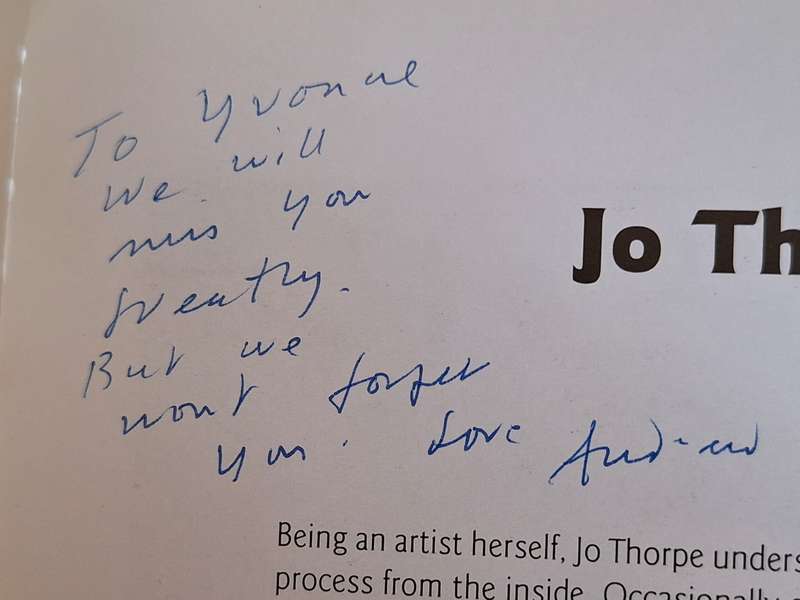 To Yvonne
We will
miss you
greatly.
But we
wont forget
you. Love
Jo Th
Being an artist herself, Jo Thorpe unders
process from the inside. Occasionally